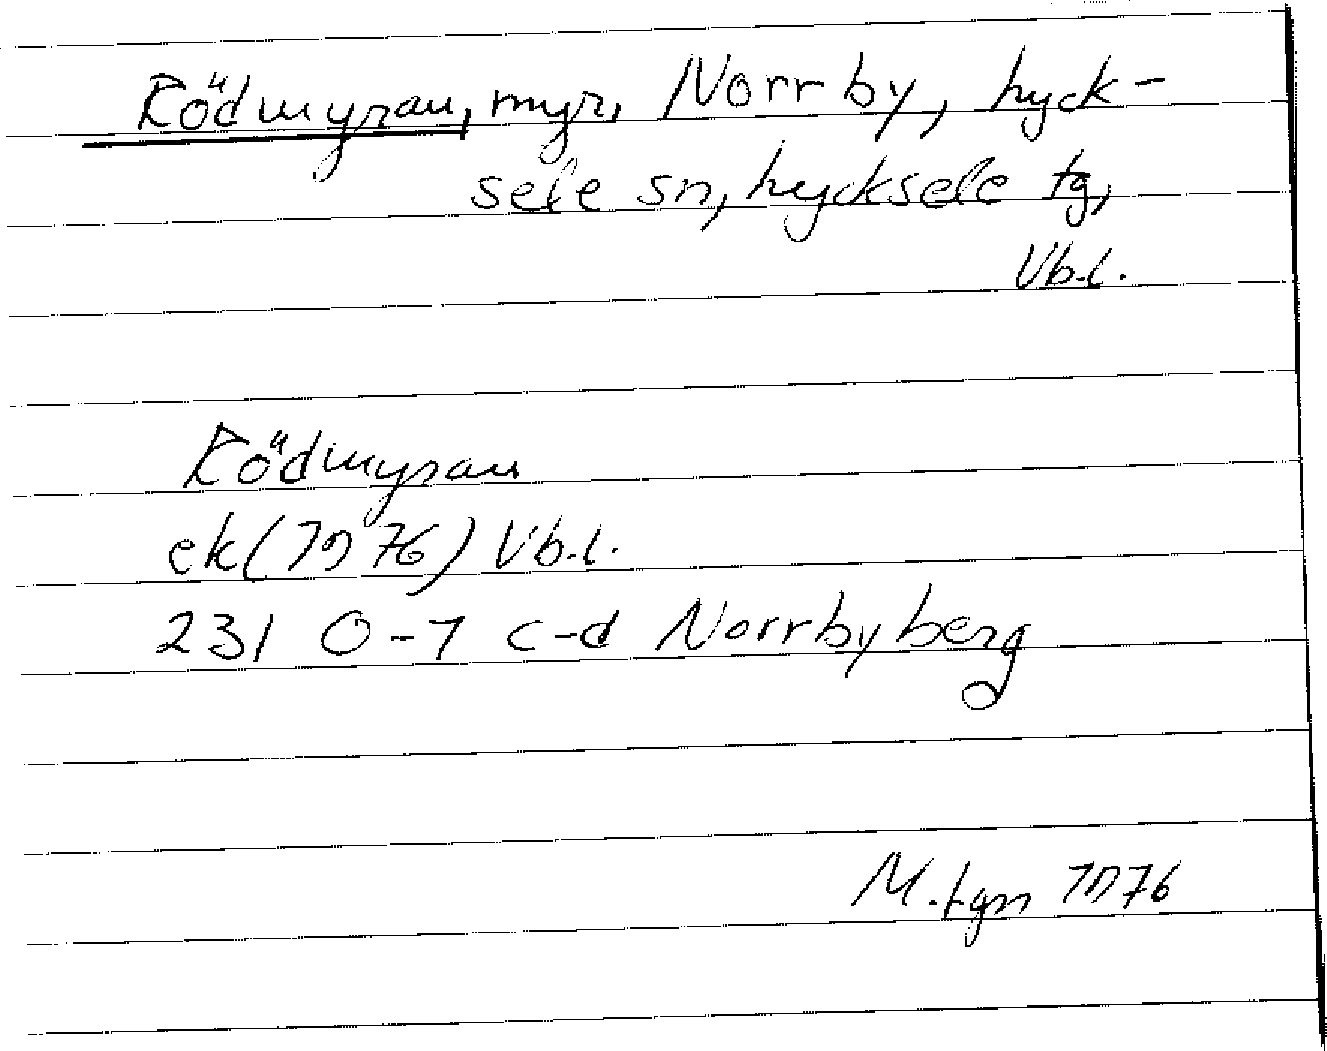 Rödmyran, myr, Norrby, Lyck-
sele sn, Lycksele tg,
Vb.l.
Rödmyran
ek (1976) Vb.l.
231 0-1 c-d Norrbyberg
1976